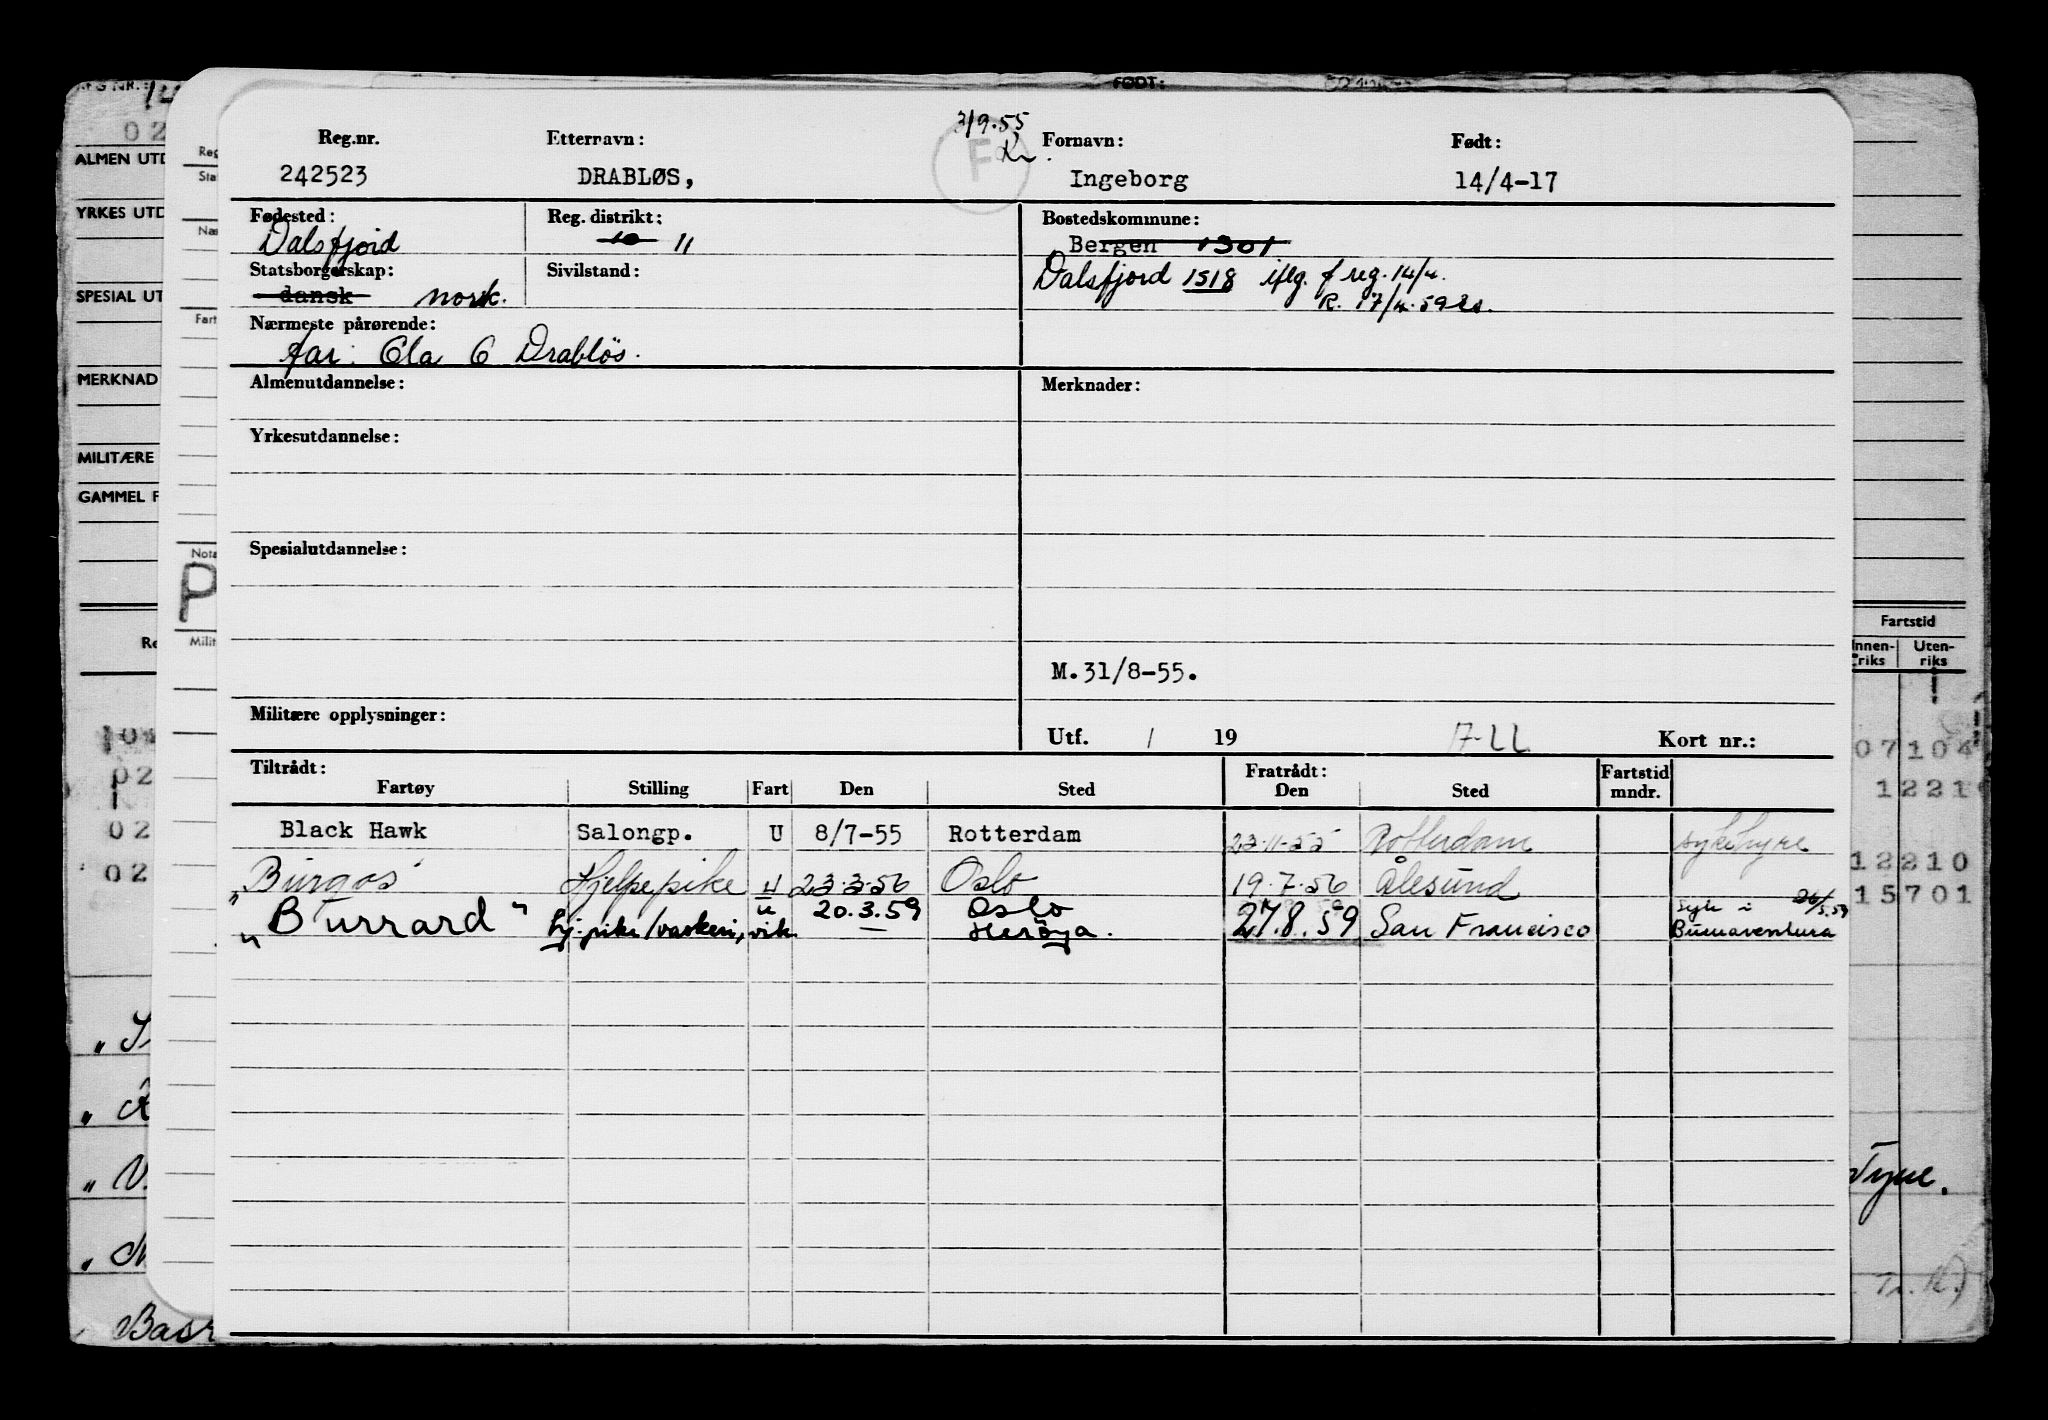 3/9.55
Reg.nr. Etternavn: F Fornavn: Født:
242523 DRABLØS, Ingeborg 14/4-17
Fødested: Reg. distrikt: Bostedskommune:
Dalsfjord 10 11 Bergen 1301
Statsborgerskap: Sivilstand: Dalsfjord 1518 iflg. f reg. 14/4.
dansk norsk. R. 17/4-59
Nærmeste pårørende:
far: Ola O Drabløs.
Almenutdannelse: Merknader:
Yrkesutdannelse:
Spesialutdannelse:
M.31/8-55.
Militære opplysninger:
Utf. / 19 Kort nr.:
Tiltrådt: Fratrådt: Fartstid
Fartøy Stilling Fart Den Sted Den Sted mndr.
Black Hawk Salongp. U 8/7-55 Rotterdam 23.11.55 Rotterdam sykehyre
"Burgos" Hjelpepike U 23.3.56 Oslo 19.7.56 Ålesund
"Burrard" hj.pike/vaskeri, vik. u 20.3.59 Oslo 27.8.59 San Francisco syk i 26/5.59
Herøya. Buenaventura
AFG NR.: FØDT:
02
ALMEN UTD
YRKES UTD
SPESIAL UT
MERKNAD
MILITÆRE
GAMMEL F
Reg
Sta
Næ
Fart
Nota
P
Milit
Re
Fartstid
Innen-riks Uten-riks
02
02
02
07104
1221
12210
15701
Tyne.
Basr